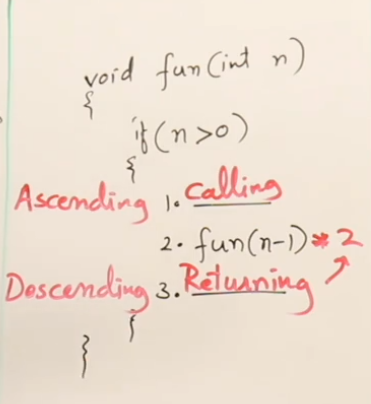 void fun(int n)
{
if(n>0)
{
Ascending 1. Calling
2. fun(n-1)*2
Descending 3. Returning
}
}